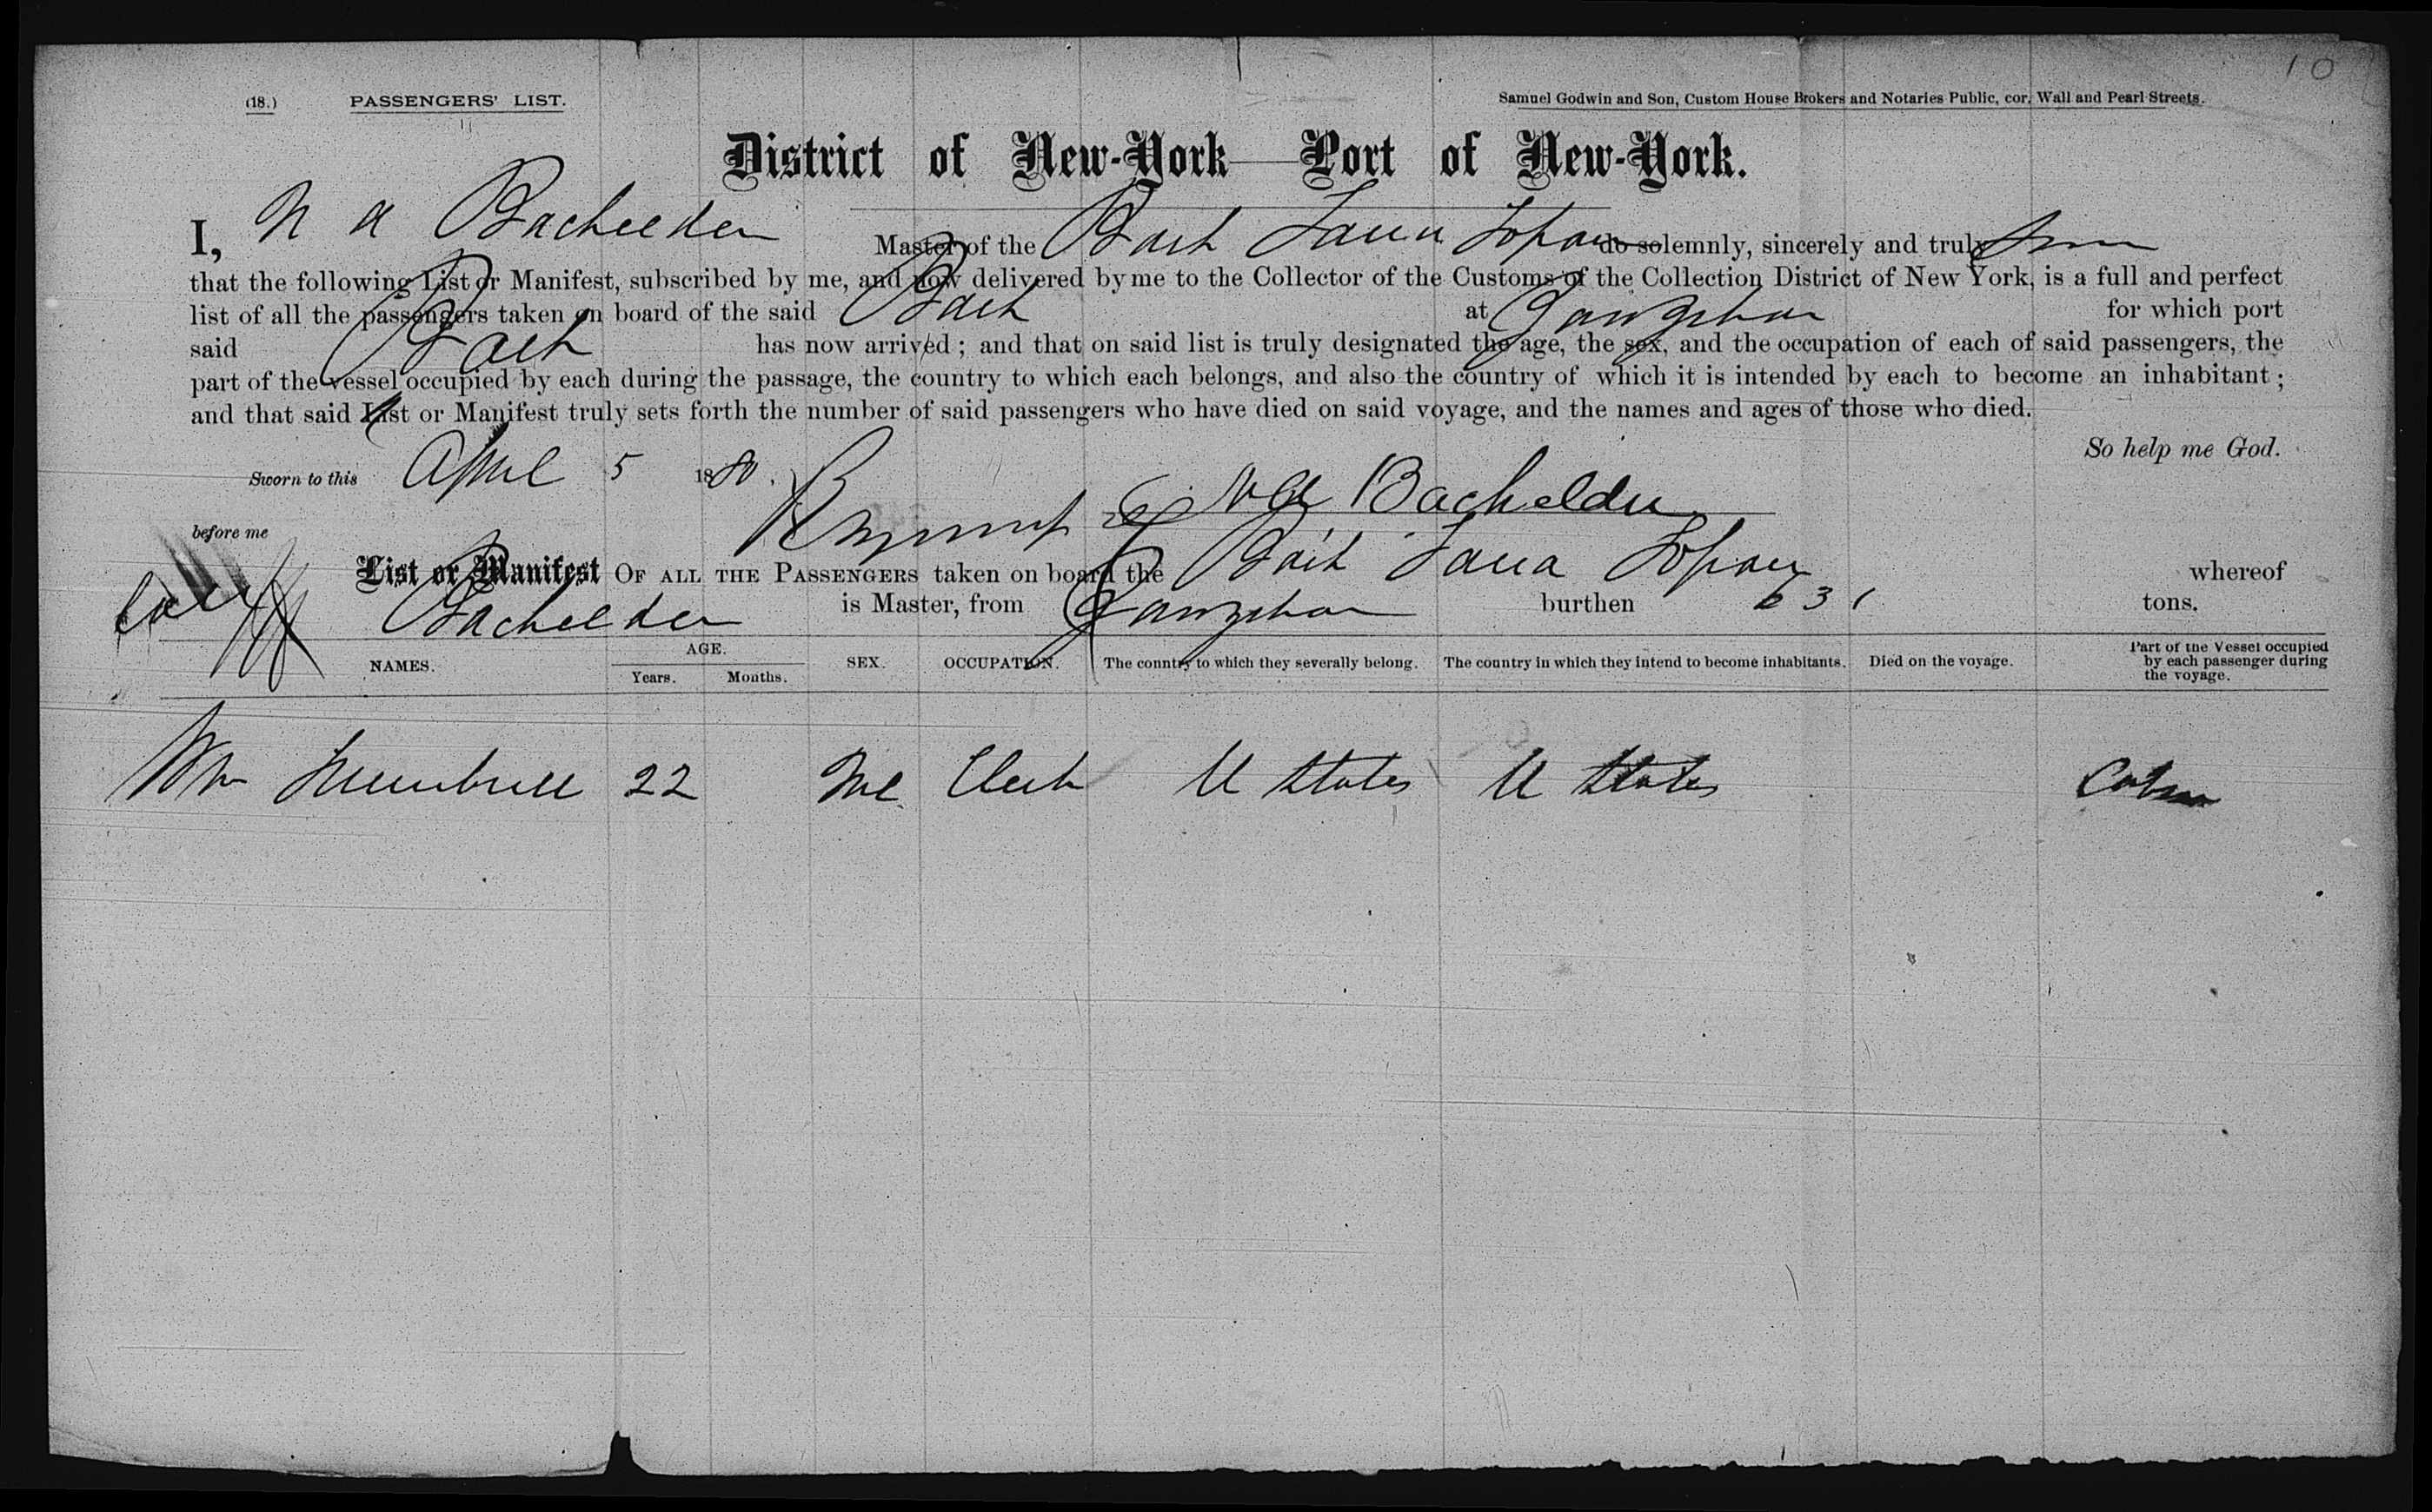 10
(18.) PASSENGERS' LIST. Samuel Godwin and Son, Custom House Brokers and Notaries Public, cor. Wall and Pearl Streets.
District of New-York—Port of New-York.
I, N A Bachelder Master of the Bark do solemnly, sincerely and truly
that the following List or Manifest, subscribed by me, and now delivered by me to the Collector of the Customs of the Collection District of New York, is a full and perfect
list of all the passengers taken on board of the said Bark at Zanzibar for which port
said Bark has now arrived; and that on said list is truly designated the age, the sex, and the occupation of each of said passengers, the
part of the vessel occupied by each during the passage, the country to which each belongs, and also the country of which it is intended by each to become an inhabitant;
and that said List or Manifest truly sets forth the number of said passengers who have died on said voyage, and the names and ages of those who died.
So help me God.
Sworn to this April 5 1880. N A Bachelder
before me
List or Manifest OF ALL THE PASSENGERS taken on board the Bark whereof
Bachelder is Master, from Zanzibar burthen 631 tons.
NAMES. AGE. Years. Months. SEX. OCCUPATION. The country to which they severally belong. The country in which they intend to become inhabitants. Died on the voyage. Part of the Vessel occupied by each passenger during the voyage.
Wm 22 Ml Clerk U States U States Cabin